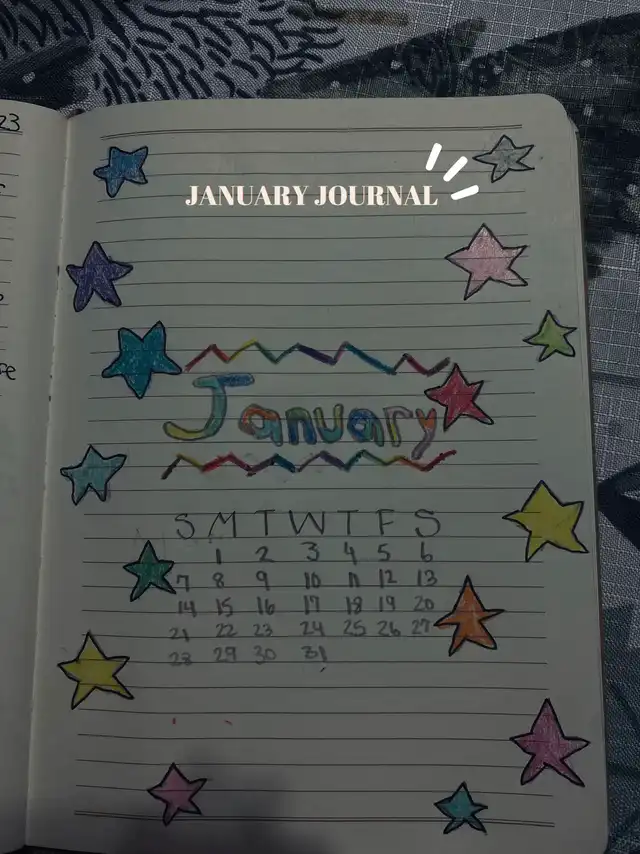 23
JANUARY JOURNAL
January
S M T W T F S
1 2 3 4 5 6
7 8 9 10 11 12 13
14 15 16 17 18 19 20
21 22 23 24 25 26 27
28 29 30 31